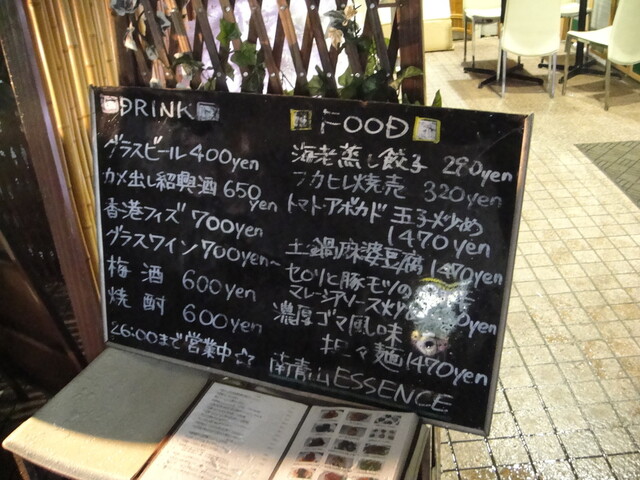 DRINK
グラスビール 400yen
カメ出し紹興酒 650yen
香港フィズ 700yen
グラスワイン 700yen~
梅酒 600yen
焼酎 600yen
26:00まで営業中☆
FOOD
海老蒸し餃子 280yen
フカヒレ焼売 320yen
トマト・アボカド 玉子炒め
1470yen
土鍋麻婆豆腐 1470yen
セロリと豚モツの
マレーシアソース炒め yen
濃厚ゴマ風味
担々麺 1470yen
南青山ESSENCE